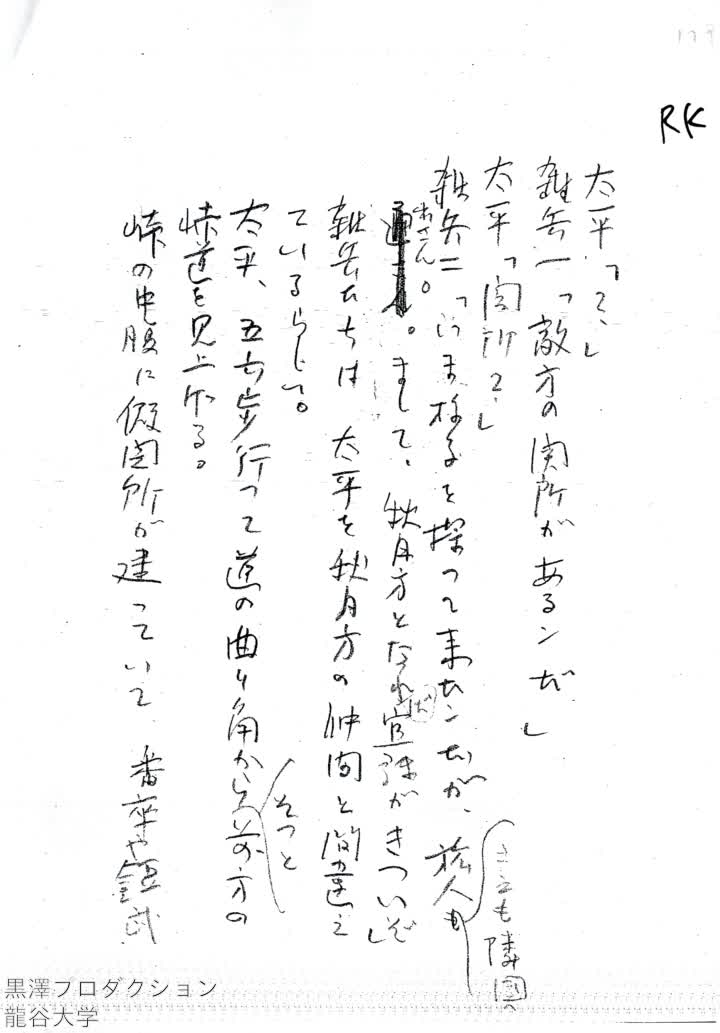 179
RK
太平「?」
雑兵一「敵方の関所があるンだ」
太平「関所?」
雑兵二「いま様子を探つて来たンだが、旅人も
さえも隣國へ
わさん。
。まして、秋月方となれば官譴がきついぞ」
雑兵たちは太平を秋月方の仲間と間違え
ているらしい。
太平、五六歩行つて道の曲り角から前方の
そつと
峠道を見上げる。
峠の中腹に仮関所が建っていて 番卒や鎧武
黒澤プロダクション
龍谷大学